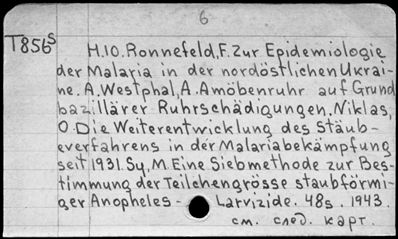 6
T856s
H.10. Ronnefeld, F. Zur Epidemiologie
der Malaria in der nordöstlichen Ukrai-
ne. A. Westphal, A. Amöbenruhr auf Grund
bazillärer Ruhrschädigungen. Niklas,
O. Die Weiterentwicklung des Stäub-
everfahrens in der Malariabekämpfung
seit 1931. Sy, M. Eine Siebmethode zur Bes-
timmung der Teilchengrösse staubförmi-
ger Anopheles - Larvizide. 48s. 1943.
см. след. карт.